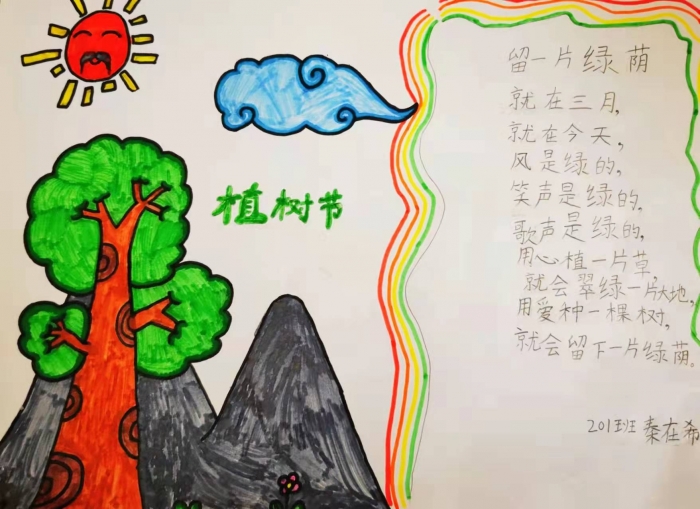 植树节
留一片绿荫
就在三月,
就在今天,
风是绿的,
笑声是绿的.
歌声是绿的,
用心植一片草,
就会翠绿一片大地,
用爱种一棵树,
就会留下一片绿荫。
201班 秦在希